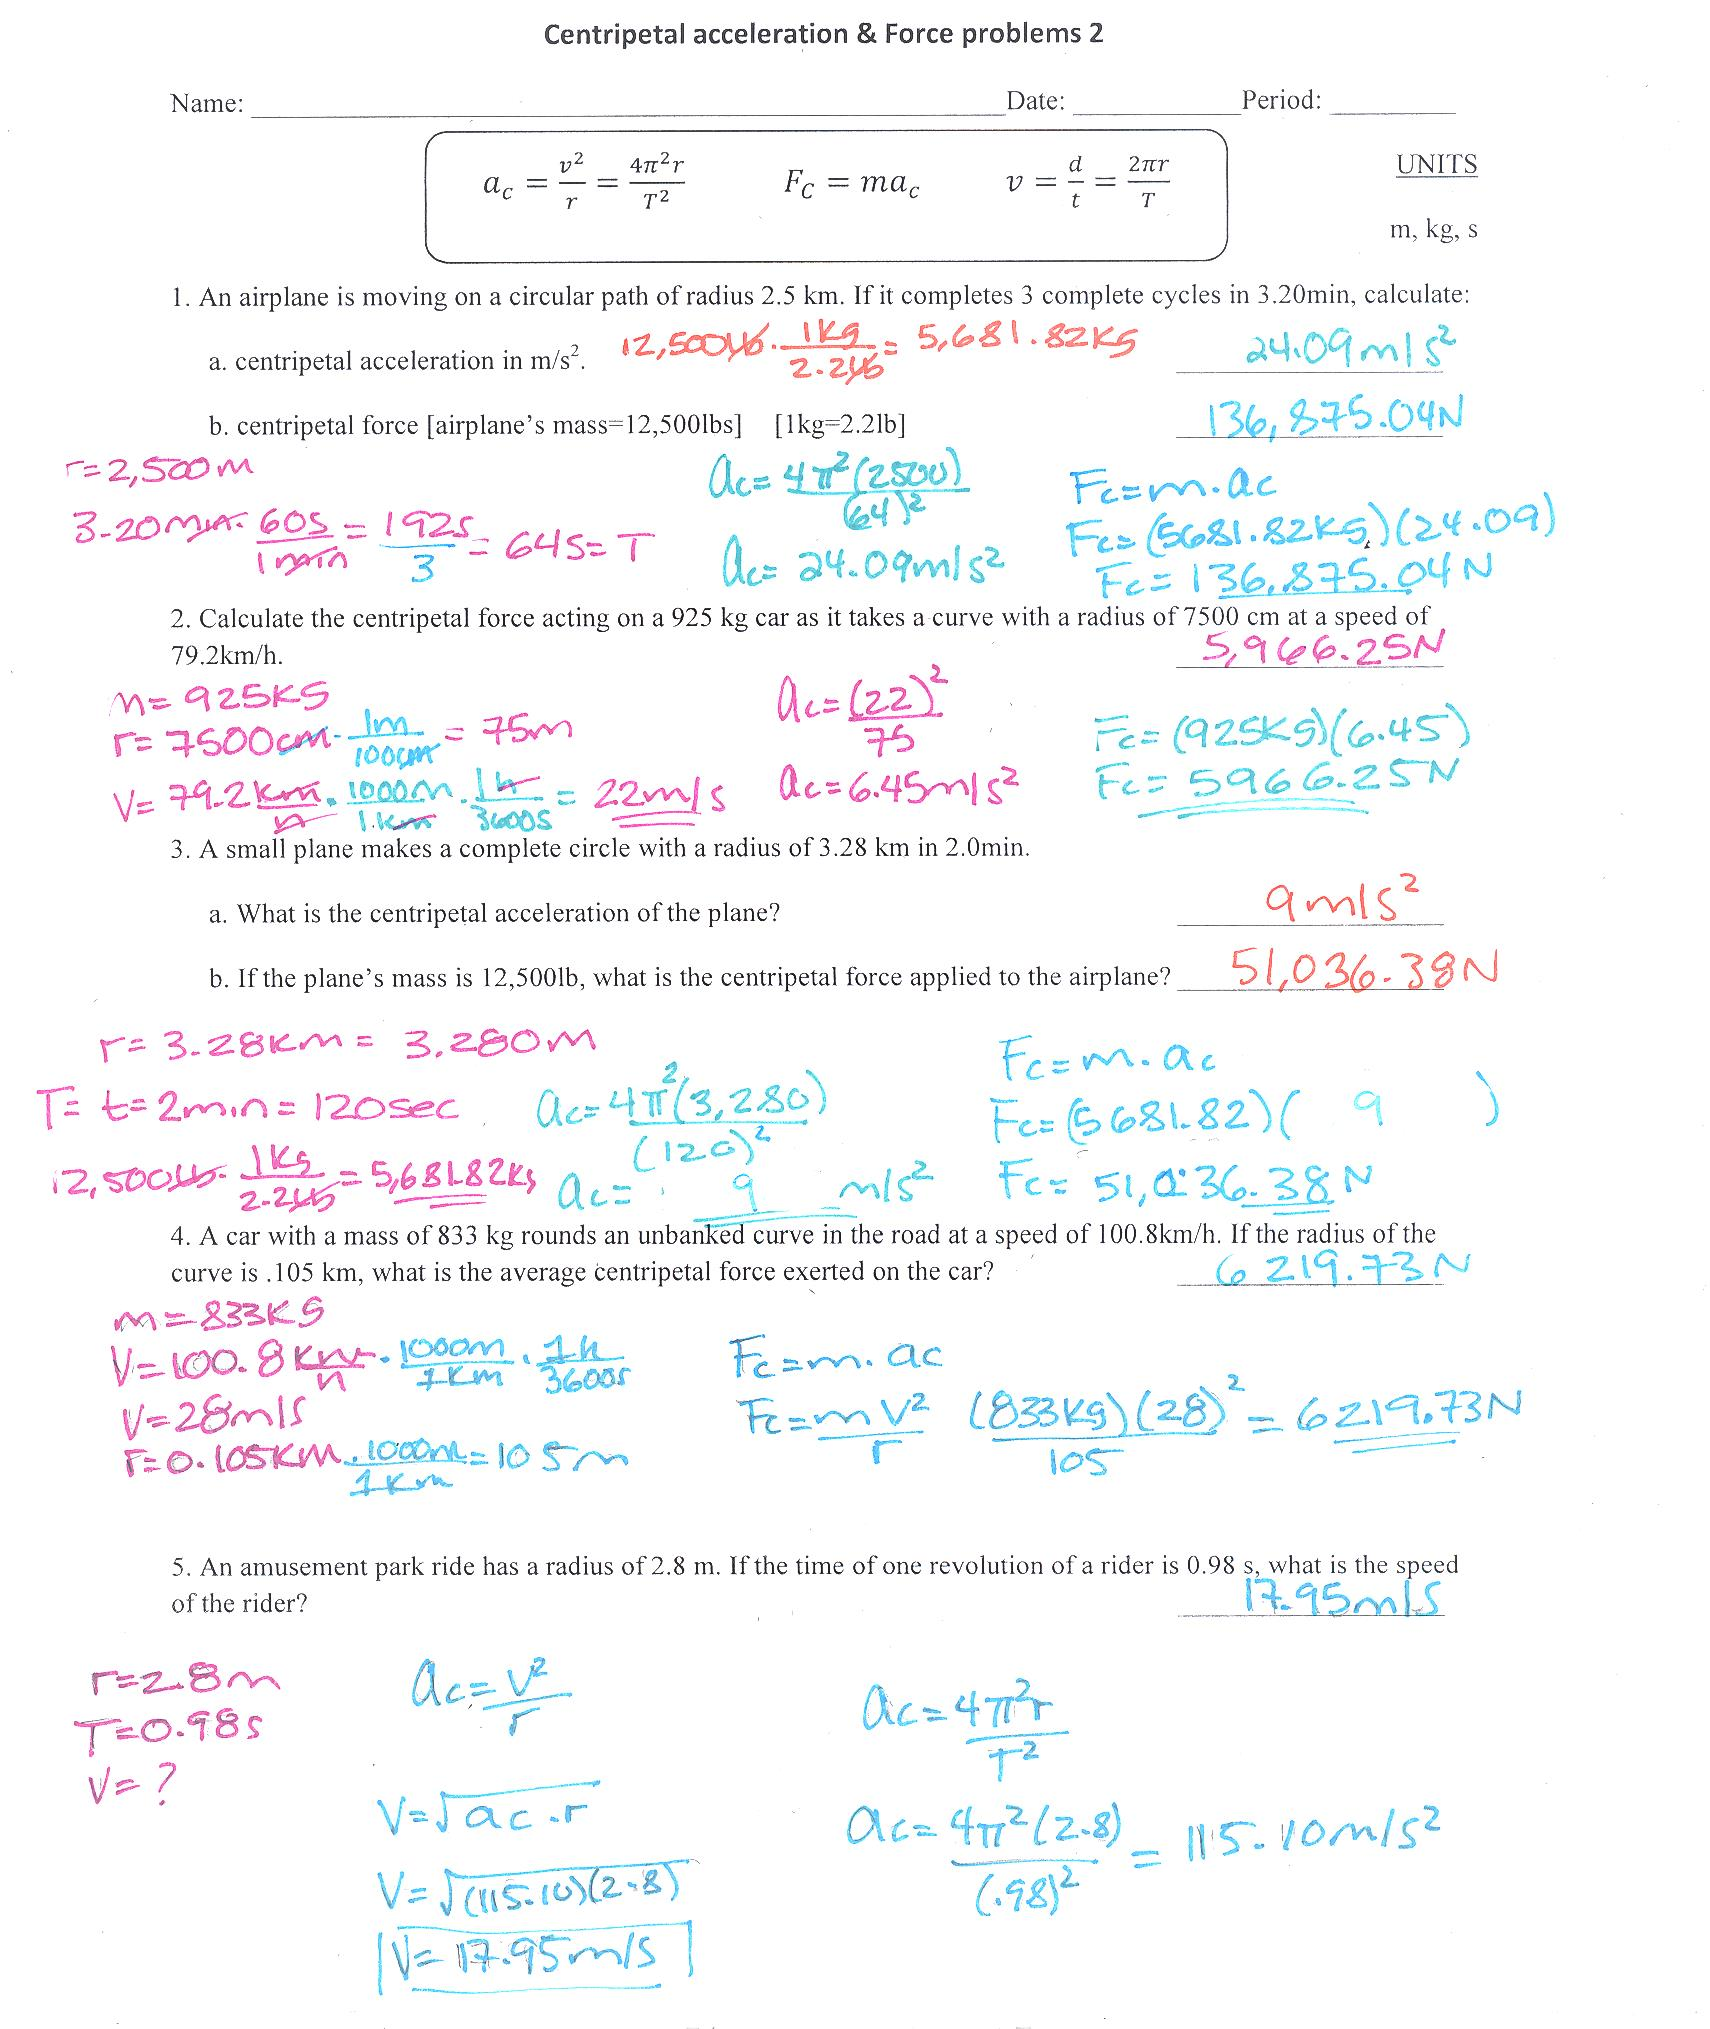 Centripetal acceleration & Force problems 2
Name: Date: Period:
a_c = v²/r = 4π²r/T² F_C = ma_c v = d/t = 2πr/T
UNITS
m, kg, s
1. An airplane is moving on a circular path of radius 2.5 km. If it completes 3 complete cycles in 3.20min, calculate:
12,500lb · 1kg/2.2lb = 5,681.82kg
a. centripetal acceleration in m/s². 24.09m/s²
b. centripetal force [airplane's mass=12,500lbs] [1kg=2.2lb] 136,875.04N
r=2,500m
3.20min · 60s/1min = 192s/3 = 64s=T
ac= 4π²(2500)/(64)²
ac= 24.09m/s²
Fc=m·ac
Fc= (5681.82kg)(24.09)
Fc= 136,875.04N
2. Calculate the centripetal force acting on a 925 kg car as it takes a curve with a radius of 7500 cm at a speed of
79.2km/h. 5,966.25N
m= 925kg
r= 7500cm · 1m/100cm = 75m
V= 79.2km/h · 1000m/1km · 1h/3600s = 22m/s
ac=(22)²/75
ac=6.45m/s²
Fc= (925kg)(6.45)
Fc= 5966.25N
3. A small plane makes a complete circle with a radius of 3.28 km in 2.0min.
a. What is the centripetal acceleration of the plane? 9m/s²
b. If the plane's mass is 12,500lb, what is the centripetal force applied to the airplane? 51,036.38N
r= 3.28km = 3,280m
T= t=2min=120sec
12,500lb · 1kg/2.2lb = 5,681.82kg
ac= 4π²(3,280)/(120)²
ac= 9 m/s²
Fc=m·ac
Fc=(5681.82)( 9 )
Fc= 51,036.38N
4. A car with a mass of 833 kg rounds an unbanked curve in the road at a speed of 100.8km/h. If the radius of the
curve is .105 km, what is the average centripetal force exerted on the car? 6219.73N
m=833kg
V=100.8km/h · 1000m/1km · 1h/3600s
V=28m/s
r=0.105km · 1000m/1km = 105m
Fc=m·ac
Fc=mv²/r (833kg)(28)²/105 = 6219.73N
5. An amusement park ride has a radius of 2.8 m. If the time of one revolution of a rider is 0.98 s, what is the speed
of the rider? 17.95m/s
r=2.8m
T=0.98s
V=?
ac=v²/r
V=√ac·r
V=√(115.10)(2.8)
V= 17.95m/s
ac=4π²r/T²
ac= 4π²(2.8)/(.98)² = 115.10m/s²